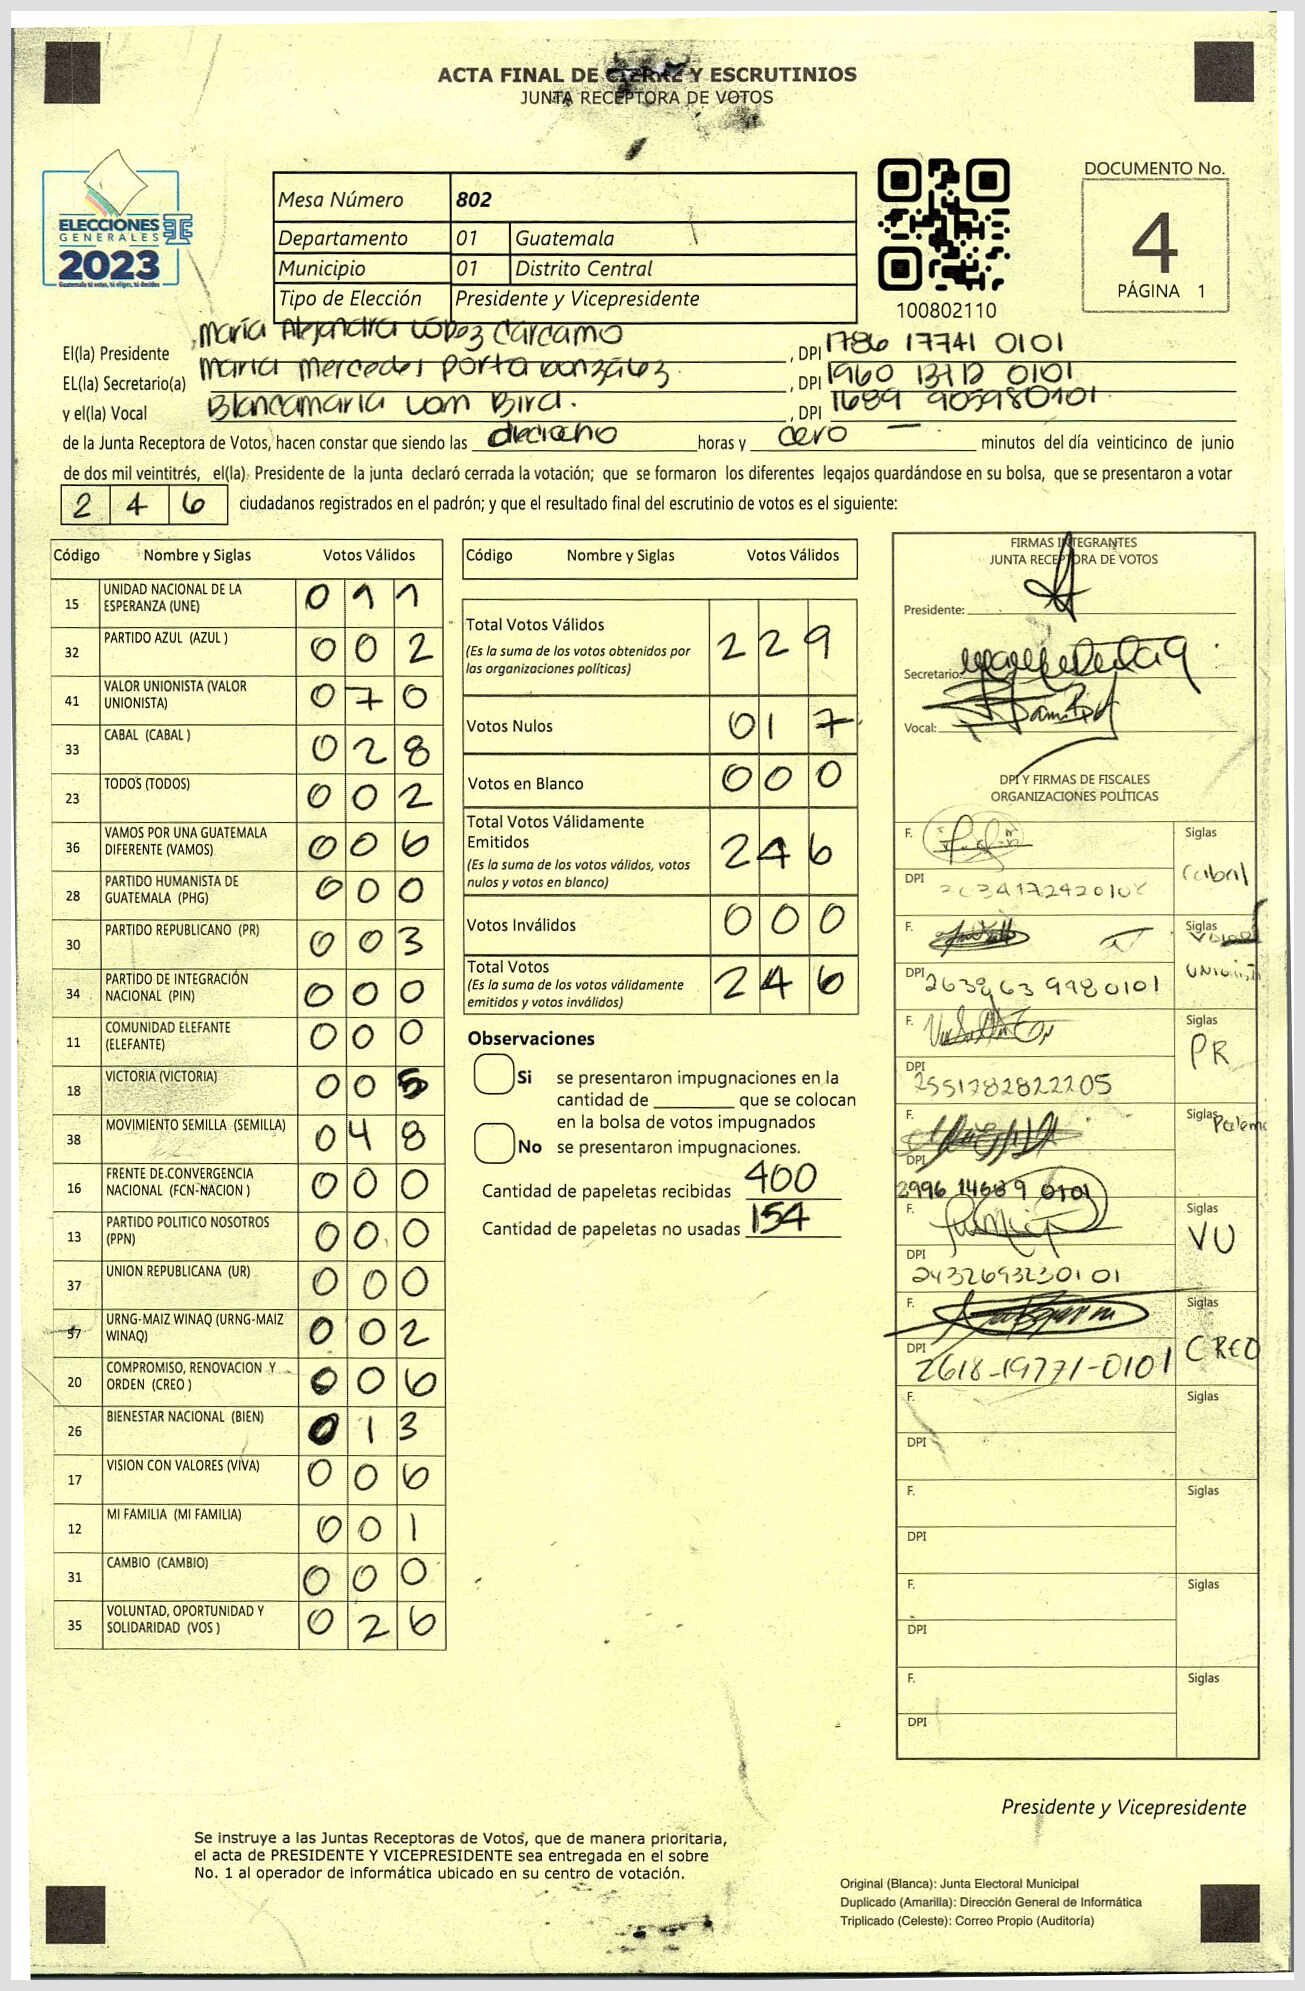 ACTA FINAL DE CIERRE Y ESCRUTINIOS
JUNTA RECEPTORA DE VOTOS
ELECCIONES
GENERALES
2023
Guatemala tú votas, tú eliges, tú decides
Mesa Número 802
Departamento 01 Guatemala
Municipio 01 Distrito Central
Tipo de Elección Presidente y Vicepresidente
100802110
DOCUMENTO No.
4
PÁGINA 1
El(la) Presidente María Alejandra López Cárcamo , DPI 1786 17741 0101
EL(la) Secretario(a) María Mercedes Porta González , DPI 1960 0101
y el(la) Vocal Blancamaría Bird. , DPI 1689 905980101
de la Junta Receptora de Votos, hacen constar que siendo las dieciocho horas y cero minutos del día veinticinco de junio
de dos mil veintitrés, el(la) Presidente de la junta declaró cerrada la votación; que se formaron los diferentes legajos guardándose en su bolsa, que se presentaron a votar
2 4 6 ciudadanos registrados en el padrón; y que el resultado final del escrutinio de votos es el siguiente:
Código Nombre y Siglas Votos Válidos
15 UNIDAD NACIONAL DE LA ESPERANZA (UNE) 0 1 1
32 PARTIDO AZUL (AZUL ) 0 0 2
41 VALOR UNIONISTA (VALOR UNIONISTA) 0 7 0
33 CABAL (CABAL ) 0 2 8
23 TODOS (TODOS) 0 0 2
36 VAMOS POR UNA GUATEMALA DIFERENTE (VAMOS) 0 0 6
28 PARTIDO HUMANISTA DE GUATEMALA (PHG) 0 0 0
30 PARTIDO REPUBLICANO (PR) 0 0 3
34 PARTIDO DE INTEGRACIÓN NACIONAL (PIN) 0 0 0
11 COMUNIDAD ELEFANTE (ELEFANTE) 0 0 0
18 VICTORIA (VICTORIA) 0 0 5
38 MOVIMIENTO SEMILLA (SEMILLA) 0 4 8
16 FRENTE DE CONVERGENCIA NACIONAL (FCN-NACION ) 0 0 0
13 PARTIDO POLITICO NOSOTROS (PPN) 0 0 0
37 UNION REPUBLICANA (UR) 0 0 0
57 URNG-MAIZ WINAQ (URNG-MAIZ WINAQ) 0 0 2
20 COMPROMISO, RENOVACION Y ORDEN (CREO ) 0 0 6
26 BIENESTAR NACIONAL (BIEN) 0 1 3
17 VISION CON VALORES (VIVA) 0 0 6
12 MI FAMILIA (MI FAMILIA) 0 0 1
31 CAMBIO (CAMBIO) 0 0 0
35 VOLUNTAD, OPORTUNIDAD Y SOLIDARIDAD (VOS ) 0 2 6
Código Nombre y Siglas Votos Válidos
Total Votos Válidos 2 2 9
(Es la suma de los votos obtenidos por
las organizaciones políticas)
Votos Nulos 0 1 7
Votos en Blanco 0 0 0
Total Votos Válidamente
Emitidos 2 4 6
(Es la suma de los votos válidos, votos
nulos y votos en blanco)
Votos Inválidos 0 0 0
Total Votos 2 4 6
(Es la suma de los votos válidamente
emitidos y votos inválidos)
Observaciones
Si se presentaron impugnaciones en la
cantidad de ________ que se colocan
en la bolsa de votos impugnados
No se presentaron impugnaciones.
Cantidad de papeletas recibidas 400
Cantidad de papeletas no usadas 154
FIRMAS INTEGRANTES
JUNTA RECEPTORA DE VOTOS
Presidente:
Secretario:
Vocal:
DPI Y FIRMAS DE FISCALES
ORGANIZACIONES POLÍTICAS
F. Siglas
DPI
F. Siglas
DPI
F. Siglas PR
DPI 2551782822205
F. Siglas
DPI 2996 14689 0101
F. Siglas VU
DPI 2432693230101
F. Siglas CREO
DPI 2618-19771-0101
F. Siglas
DPI
F. Siglas
DPI
F. Siglas
DPI
F. Siglas
DPI
Presidente y Vicepresidente
Se instruye a las Juntas Receptoras de Votos, que de manera prioritaria,
el acta de PRESIDENTE Y VICEPRESIDENTE sea entregada en el sobre
No. 1 al operador de informática ubicado en su centro de votación.
Original (Blanca): Junta Electoral Municipal
Duplicado (Amarilla): Dirección General de Informática
Triplicado (Celeste): Correo Propio (Auditoría)